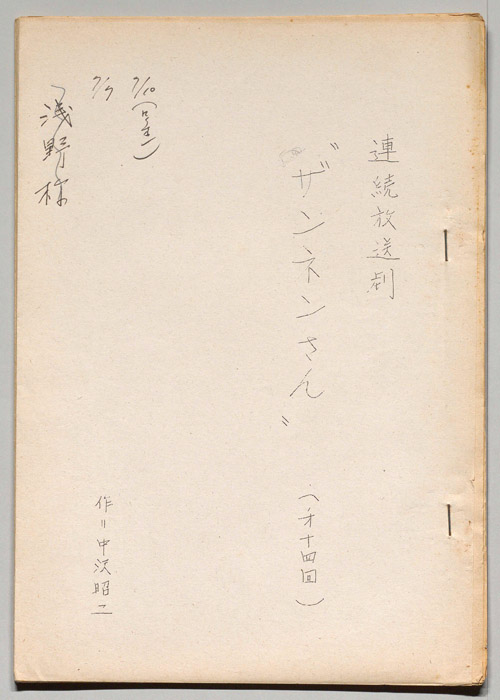 連続放送劇
"ザンネンさん"
(才十四回)
7/10
7/7
浅野様
作＝中沢昭二